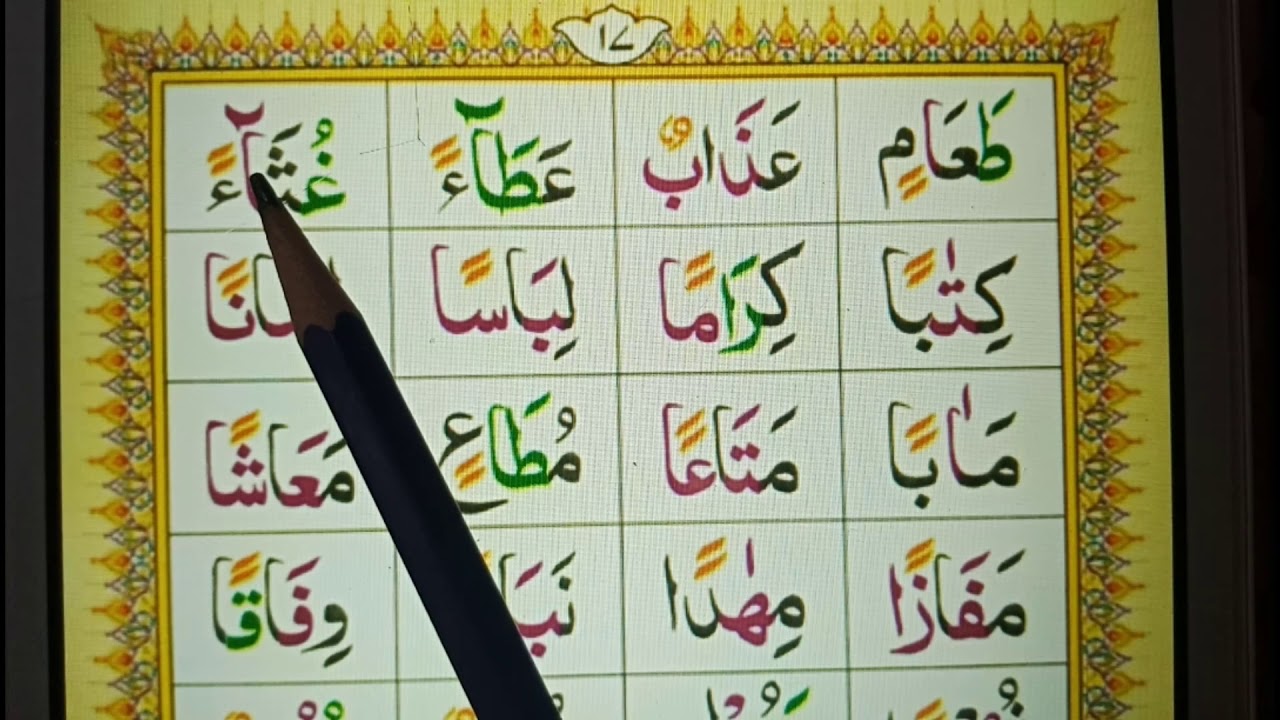 ١٧
طَعَامٍ عَذَابٌ عَطَآءً غُثَآءً
كِتٰبًا كِرَامًا لِبَاسًا
مَاٰبًا مَتَاعًا مُطَاعٍ مَعَاشًا
مَفَازًا مِهٰدًا وِفَاقًا